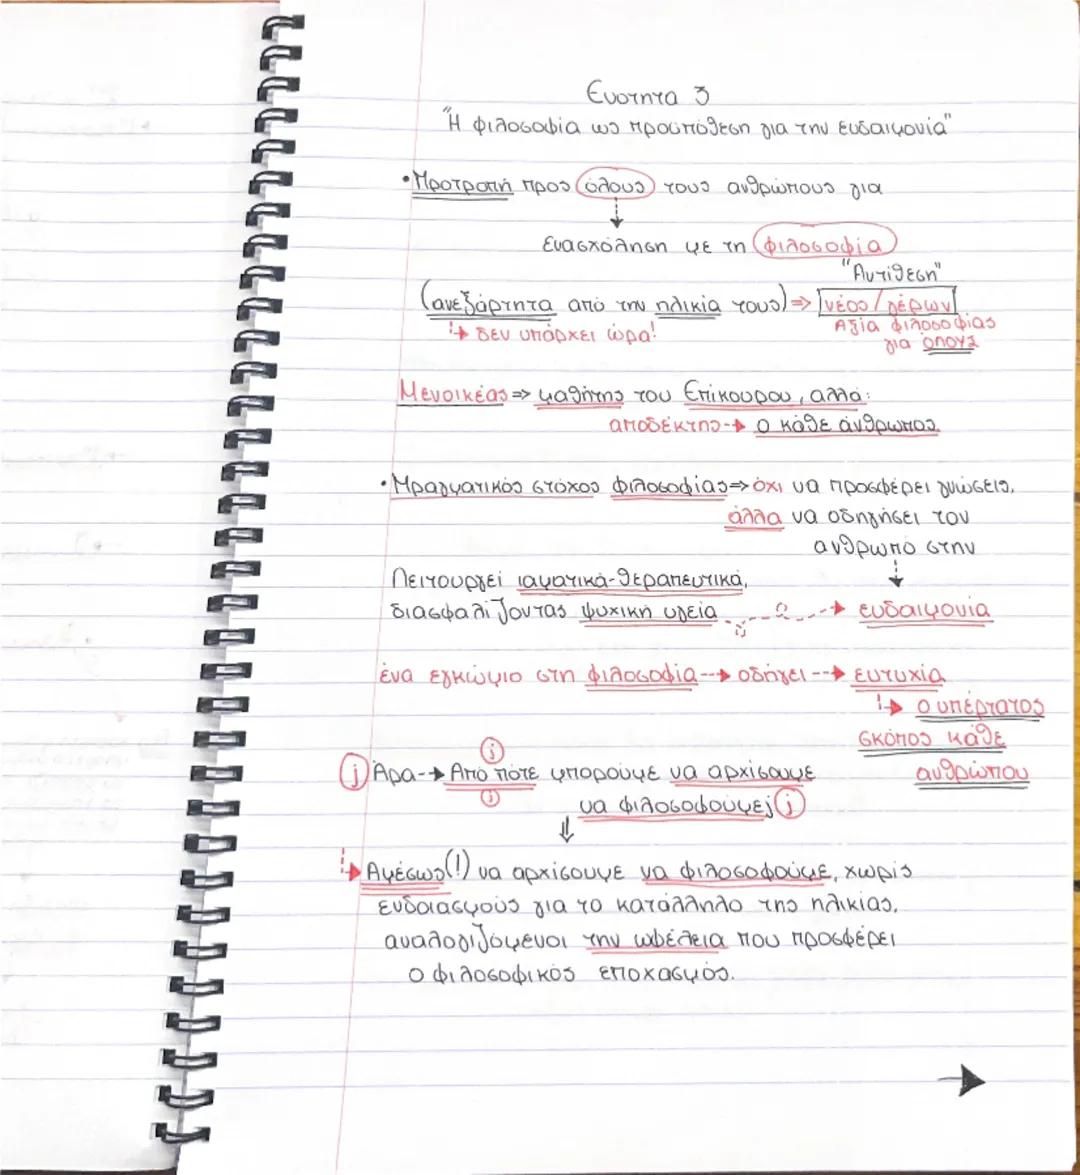 Ενότητα 3
"Η φιλοσοφία ως προϋπόθεση για την ευδαιμονία"
•Προτροπή προς όλους τους ανθρώπους για
ενασχόληση με τη φιλοσοφία
"Αντίθεση"
(ανεξάρτητα από την ηλικία τους)⇒ νέος/γέρων
↳ δεν υπάρχει ώρα!
Αξία φιλοσοφίας
για όλους
Μενοικέας⇒ μαθητής του Επίκουρου, αλλά:
αποδέκτης→ ο κάθε άνθρωπος.
•Πραγματικός στόχος φιλοσοφίας⇒ όχι να προσφέρει γνώσεις,
άλλα να οδηγήσει τον
άνθρωπό στην
Λειτουργεί ιαματικά-θεραπευτικά,
διασφαλίζοντας ψυχική υγεία → ευδαιμονία
ένα εγκώμιο στη φιλοσοφία→ οδηγεί→ ευτυχία
↳ ο υπέρτατος
σκοπός κάθε
ανθρώπου
; Άρα→ Από πότε μπορούμε να αρχίσουμε
να φιλοσοφούμε;
Αμέσως(!) να αρχίσουμε να φιλοσοφούμε, χωρίς
ενδοιασμούς για το κατάλληλο της ηλικίας,
αναλογιζόμενοι την ωφέλεια που προσφέρει
ο φιλοσοφικός στοχασμός.